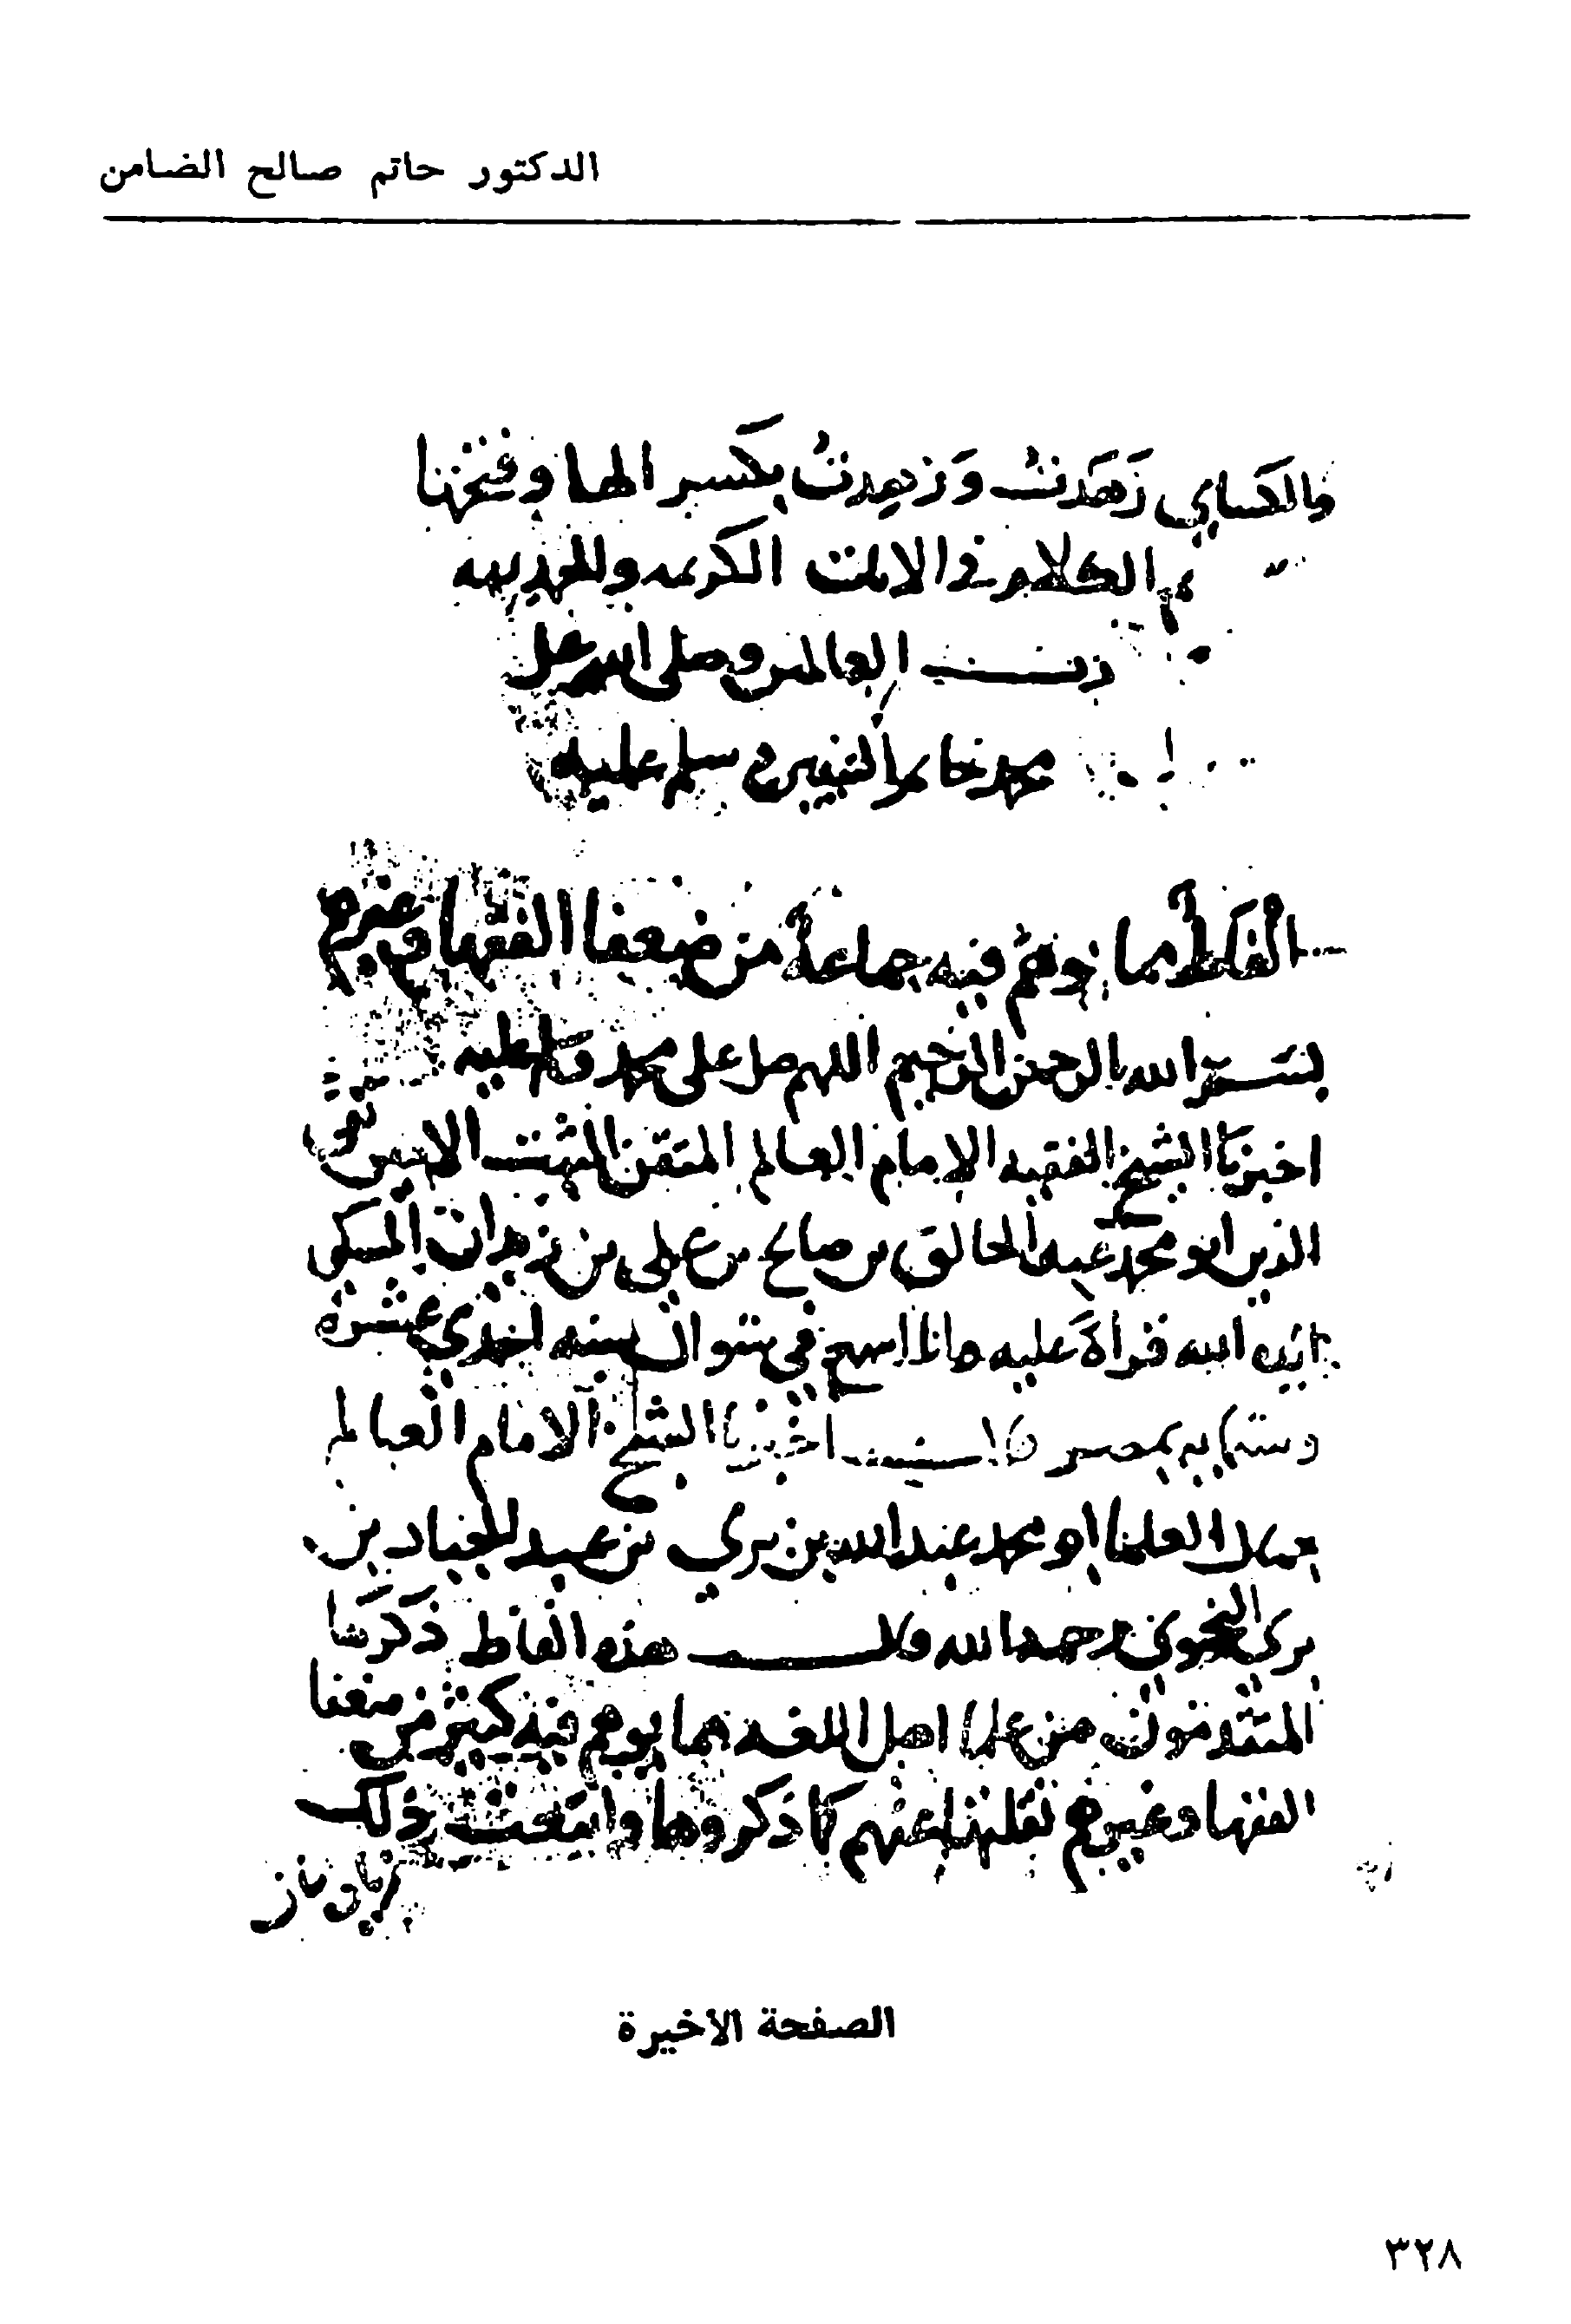 الدكتور حاتم صالح الضامن
قال الكساي زَهَدتُ وَزهِدتُ بكسر الها وفتحها
تم الكلام في الايات الكريمه والحمد لله
رب العالمين وصلى الله على
محمد خاتم النبيين وسلم عليه
الفاظٌ مما توهَّم فيه جماعةٌ من ضعفا الفقها وغيرهم
بسم الله الرحمن الرحيم اللهم صل على محمد وسلم عليه
اخبرنا الشيخ الفقيه الامام العالم المتقن الثبت الامين تقي
الدين ابو محمد عبد الخالق بن صالح بن علي بن زيدان المسكي
ايده الله قراةً عليه وانا اسمع في شوال سنه احدي عشرة
وستمايه بمصر قال اخبرنا الشيخ الامام العالم
جمال العلما ابو محمد عبد الله بن بري بن عبد الجبار بن
بري النحوي رحمه الله قال هذه الفاظ ذكرها
المتقدمون من علما اهل اللغه مما يوهم فيه كثير من ضعفا
الفقها وغيرهم نقلتها عنهم كما ذكروها واتبعت ذلك
الصفحة الاخيرة
٣٢٨